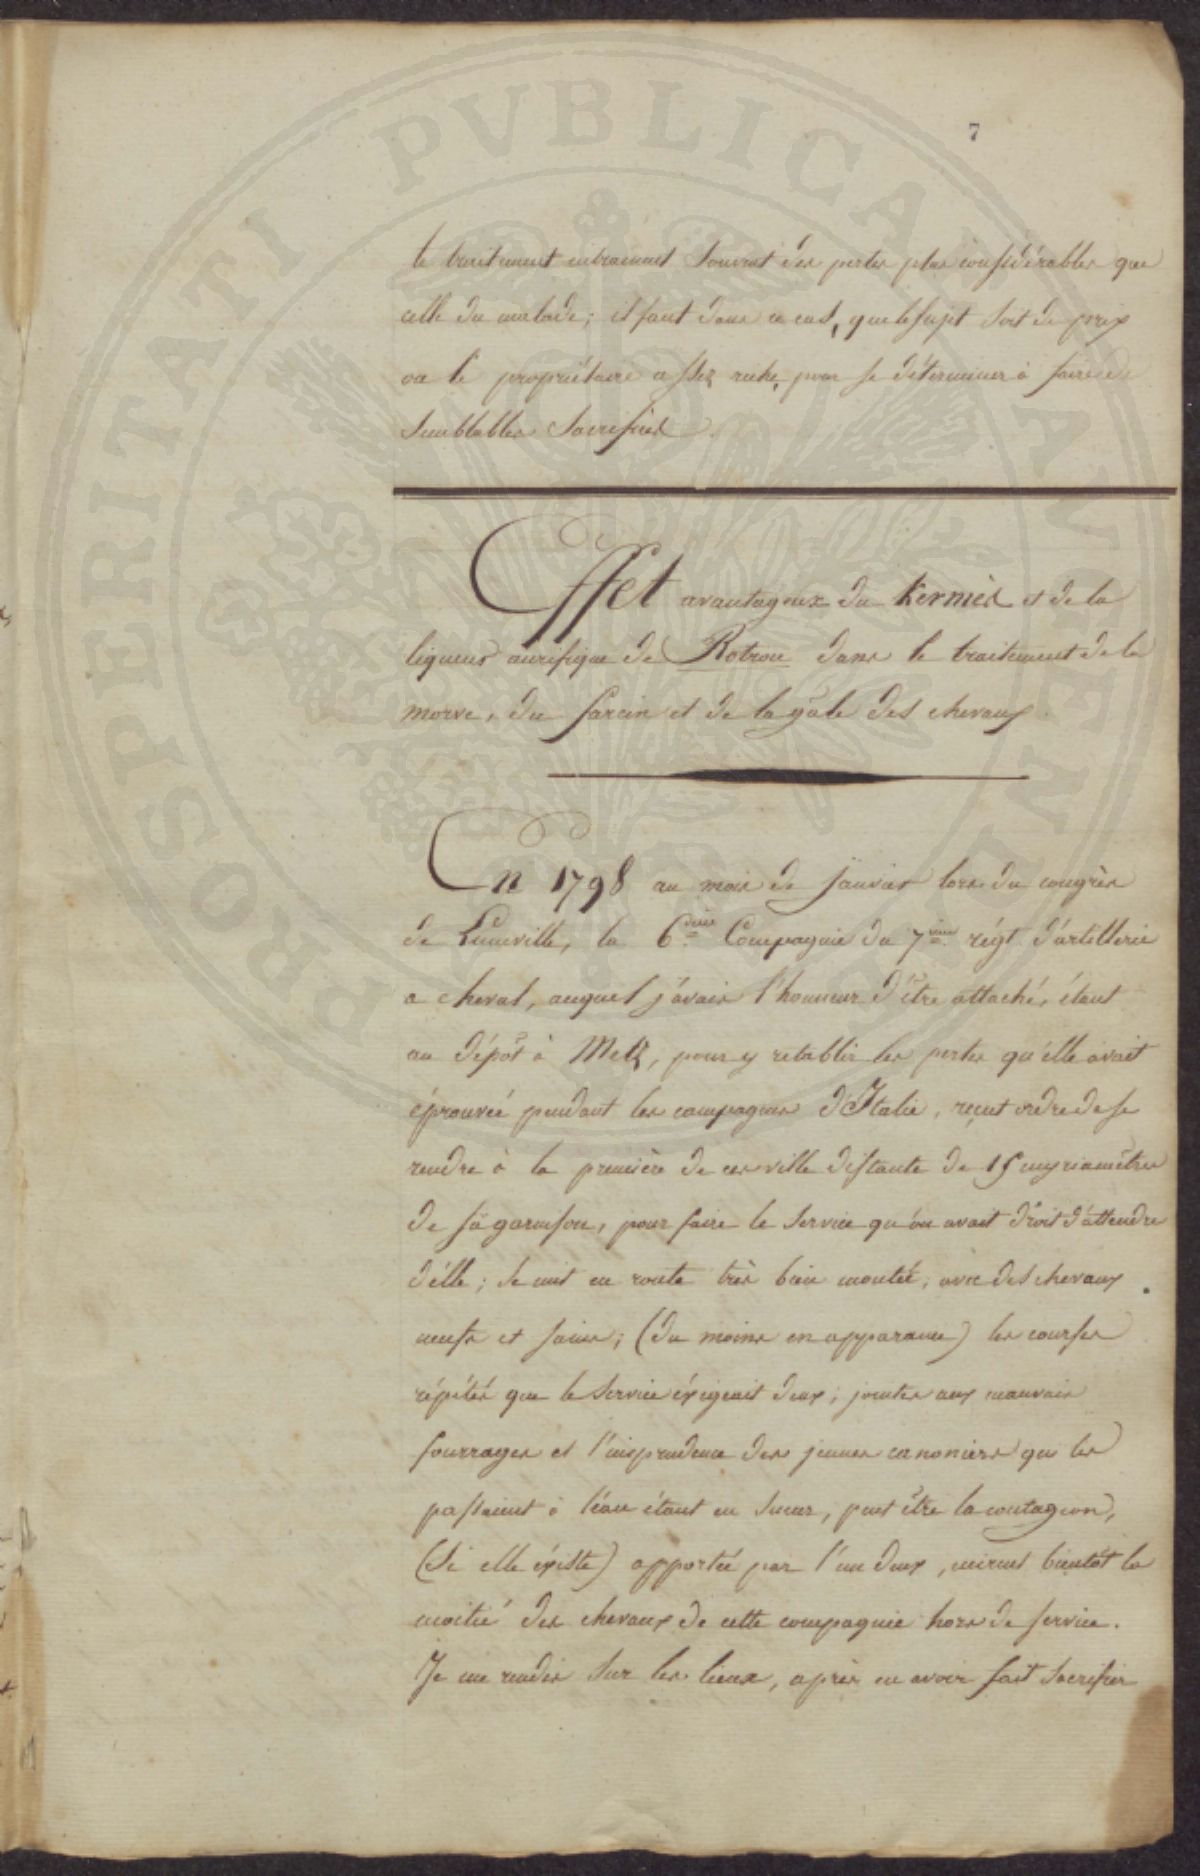 7
le traitement entrainant Souvent des pertes plus considérables que
celle du malade; il faut dans ce cas, que le sujet soit de prix
ou le propriétaire assez riche, pour se déterminer à faire de
Semblables Sacrifices
Effet avantageux du Kermès et de la
liqueur aurifique de Rotrou dans le traitement de la
morve, du farcin et de la gâle des chevaux
En 1798 au mois de janvier lors du congrès
de Luneville, la 6.ème Compagnie du 7.ème régt. d'artillerie
a cheval, auquel j'avais l'honneur d'être attaché, étant
au dépôt à Metz, pour y retablir les pertes qu'elle avait
éprouvée pendant les campagnes d'Italie, reçut ordre de se
rendre à la première de ces ville distante de 15 myriamètres
de sa garnison, pour faire le Service qu'on avait droit d'attendre
d'elle; Se mit en route très bien montée, avec des chevaux
neufs et sains; (du moins en apparance) les courses
répétés que le Service éxigeait d'eux; jointes aux mauvais
fourrages et l'imprudence des jeunes canoniers qui les
passaient à l'eau étant en Sueur, peut être la contagion,
(Si elle éxiste) apportée par l'un d'eux, mirent bientôt la
moitié des chevaux de cette compagnie hors de service.
Je me rendis Sur les lieux, après en avoir fait Sacrifier
PROSPERITATI PVBLICAE AVGENDAE